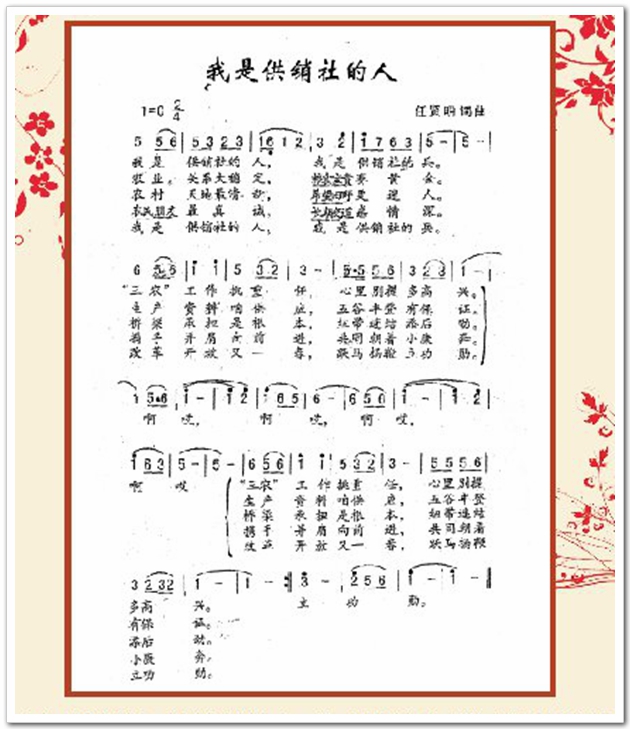 我是供销社的人
1=C 2/4 任贤明 词曲
5 5 6 | 5 3 2 3 | 1 6 1 2 | 3 2 · | 1 7 6 3 | 5 - | 5 - |
我是 供销社的 人, 我是 供销社的 兵。
农业。 关系大稳定, 赛黄金。
农村 天地最 更迷人。
农民朋友 最真诚, 感情深。
我是 供销社的 人, 我是 供销社的 兵。
6 5 6 | 1 1 | 5 3 2 | 3 - | 5 5 5 6 | 3 2 3 | 1 - |
“三农” 工作 挑重 任, 心里别提 多高 兴。
生产 资料 咱供 应, 五谷丰登 有保 证。
桥梁 承担 是根 本, 纽带连结 添后 劲。
携手 并肩 向前 进, 共同朝着 小康 奔。
改革 开放 又一 春, 跃马扬鞭 立功 勋。
啊 哎, 啊 哎, 啊 哎,
1 6 3 | 5 - | 5 - | 6 5 6 | 1 1 | 5 3 2 | 3 - | 5 5 5 6 |
啊 哎 “三农” 工作 挑重 任, 心里别提
生产 资料 咱供 应, 五谷丰登
桥梁 承担 是根 本, 纽带连结
携手 并肩 向前 进, 共同朝着
改革 开放 又一 春, 跃马扬鞭
3 2 3 2 | 1 - | 1 - :| 3 - | 2 5 6 | 1 - | 1 - ||
多高 兴。 立 功 勋。
有保 证。
添后 劲。
小康 奔。
立功 勋。